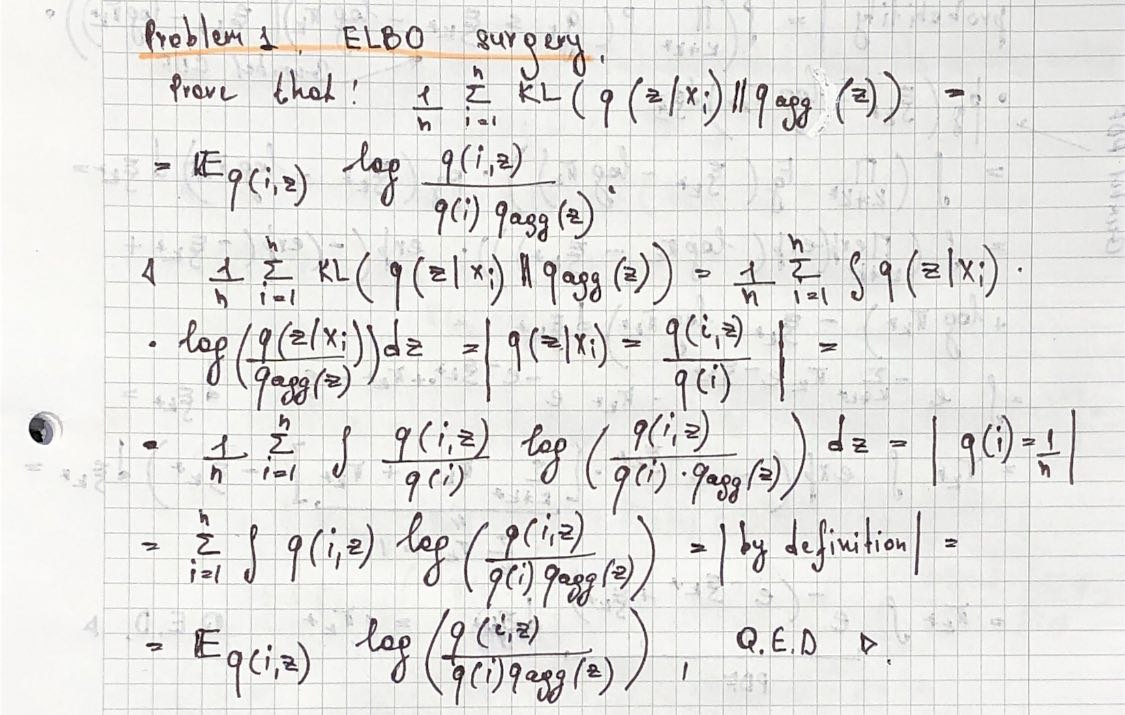 Problem 1. ELBO surgery.
Prove that: 1/n Σ_{i=1}^{n} KL(q(z|x_i) || q_agg(z)) =
= 𝔼_{q(i,z)} log q(i,z) / (q(i) q_agg(z)).
◁ 1/n Σ_{i=1}^{n} KL(q(z|x_i) || q_agg(z)) = 1/n Σ_{i=1}^{n} ∫ q(z|x_i) ·
· log(q(z|x_i) / q_agg(z)) dz = | q(z|x_i) = q(i,z) / q(i) | =
= 1/n Σ_{i=1}^{n} ∫ q(i,z) / q(i) log(q(i,z) / (q(i) · q_agg(z))) dz = | q(i) = 1/n |
= Σ_{i=1}^{n} ∫ q(i,z) log(q(i,z) / (q(i) q_agg(z))) = | by definition | =
= 𝔼_{q(i,z)} log(q(i,z) / (q(i) q_agg(z))), Q.E.D ▷.